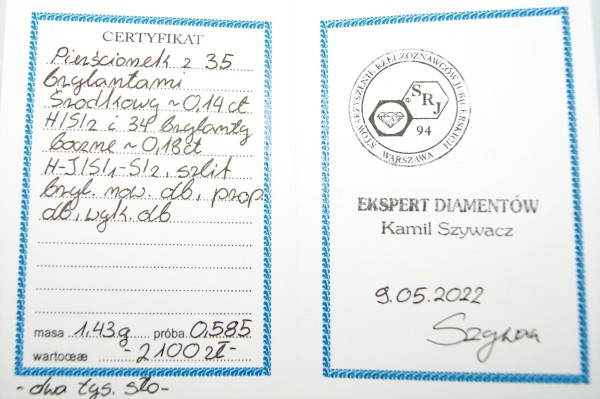 CERTYFIKAT
Pierścionek z 35
brylantami
Środkowy ~ 0,14 ct
H/SI2 i 34 brylanty
boczne ~ 0,18 ct
H-J/SI1-SI2, szlif
bryl. now. db, prop.
db, wyk. db
masa 1,43g próba 0,585
wartoœæ -2100zł-
-dwa tys. sto-
STOWARZYSZENIE RZECZOZNAWCÓW JUBILERSKICH
SRJ
94
WARSZAWA
EKSPERT DIAMENTÓW
Kamil Szywacz
9.05.2022